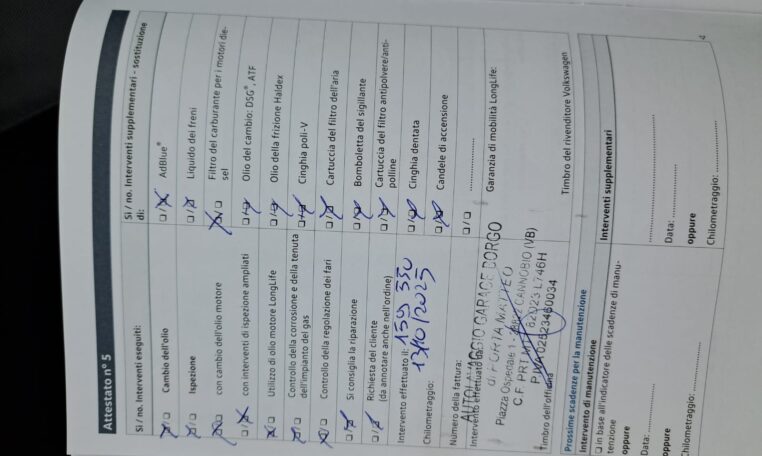 Attestato n° 5
Sì / no. Interventi eseguiti:
Cambio dell'olio
Ispezione
con cambio dell'olio motore
con interventi di ispezione ampliati
Utilizzo di olio motore LongLife
Controllo della corrosione e della tenuta
dell'impianto del gas
Controllo della regolazione dei fari
Si consiglia la riparazione
Richiesta del cliente
(da annotare anche nell'ordine)
Intervento effettuato il: 159 350
Chilometraggio: 13/10/2025
Numero della fattura:
Intervento effettuato da:
AUTOLAVAGGIO GARAGE BORGO
di PORTA MATTEO
Piazza Ospedale 1 - CANNOBIO (VB)
C.F. PRT
P.IVA 02523460034
Timbro dell'officina
Sì / no. Interventi supplementari - sostituzione
di:
AdBlue®
Liquido dei freni
Filtro del carburante per i motori die-
sel
Olio del cambio: DSG®, ATF
Olio della frizione Haldex
Cinghia poli-V
Cartuccia del filtro dell'aria
Bomboletta del sigillante
Cartuccia del filtro antipolvere/anti-
polline
Cinghia dentata
Candele di accensione
....................
Garanzia di mobilità LongLife:
Timbro del rivenditore Volkswagen
Prossime scadenze per la manutenzione
Intervento di manutenzione
in base all'indicatore delle scadenze di manu-
tenzione
oppure
Data: ....................
oppure
Chilometraggio: ....................
Interventi supplementari
....................
Data: ....................
oppure
Chilometraggio: ....................
4